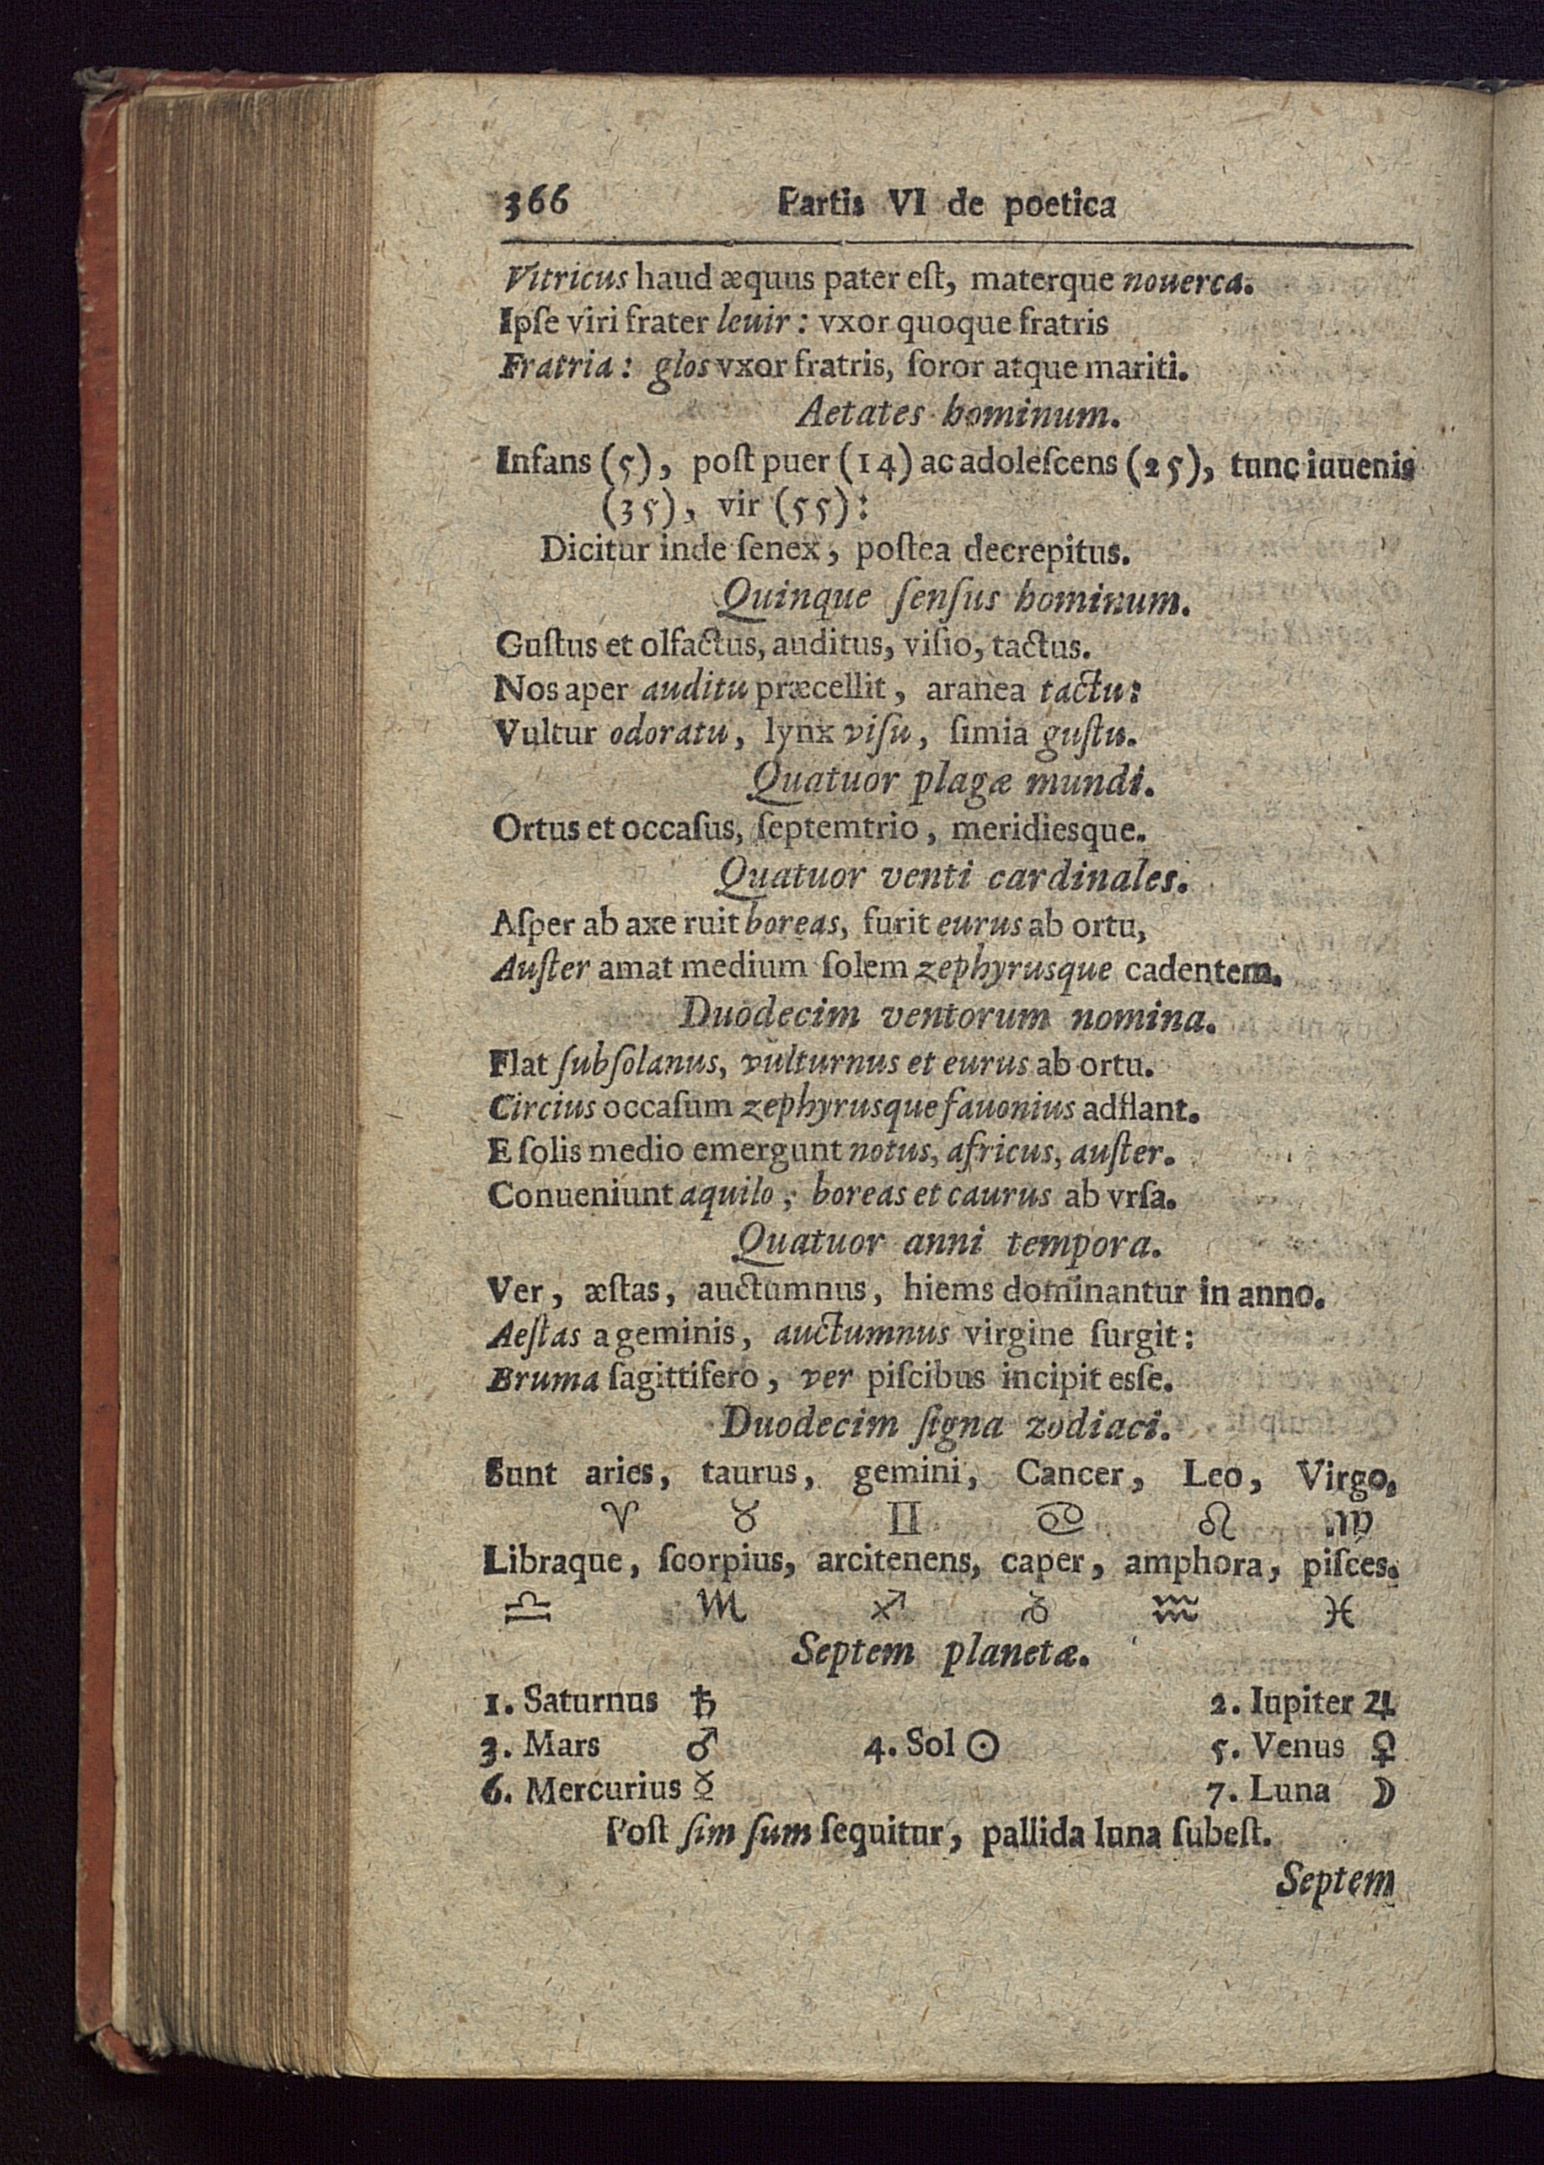 366 Partis VI de poetica
Vitricus haud æquus pater eſt, materque nouerca.
Ipſe viri frater leuir: vxor quoque fratris
Fratria: glos vxor fratris, ſoror atque mariti.
Aetates hominum.
Infans (5), poſt puer (14) ac adoleſcens (25), tunc iuuenis
(35), vir (55):
Dicitur inde ſenex, poſtea decrepitus.
Quinque ſenſus hominum.
Guſtus et olfactus, auditus, viſio, tactus.
Nos aper auditu præcellit, aranea tactu:
Vultur odoratu, lynx viſu, ſimia guſtu.
Quatuor plagæ mundi.
Ortus et occaſus, ſeptemtrio, meridiesque.
Quatuor venti cardinales.
Aſper ab axe ruit boreas, furit eurus ab ortu,
Auſter amat medium ſolem zephyrusque cadentem.
Duodecim ventorum nomina.
Flat ſubſolanus, vulturnus et eurus ab ortu.
Circius occaſum zephyrusque fauonius adflant.
E ſolis medio emergunt notus, africus, auſter.
Conueniunt aquilo, boreas et caurus ab vrſa.
Quatuor anni tempora.
Ver, æſtas, auctumnus, hiems dominantur in anno.
Aeſtas a geminis, auctumnus virgine ſurgit:
Bruma ſagittifero, ver piſcibus incipit esſe.
Duodecim ſigna zodiaci.
Sunt aries, taurus, gemini, Cancer, Leo, Virgo.
♈ ♉ ♊ ♋ ♌ ♍
Libraque, ſcorpius, arcitenens, caper, amphora, piſces.
♎ ♏ ♐ ♑ ♒ ♓
Septem planetæ.
1. Saturnus ♄ 2. Iupiter ♃
3. Mars ♂ 4. Sol ☉ 5. Venus ♀
6. Mercurius ☿ 7. Luna ☽
Poſt ſim ſum ſequitur, pallida luna ſubeſt.
Septem